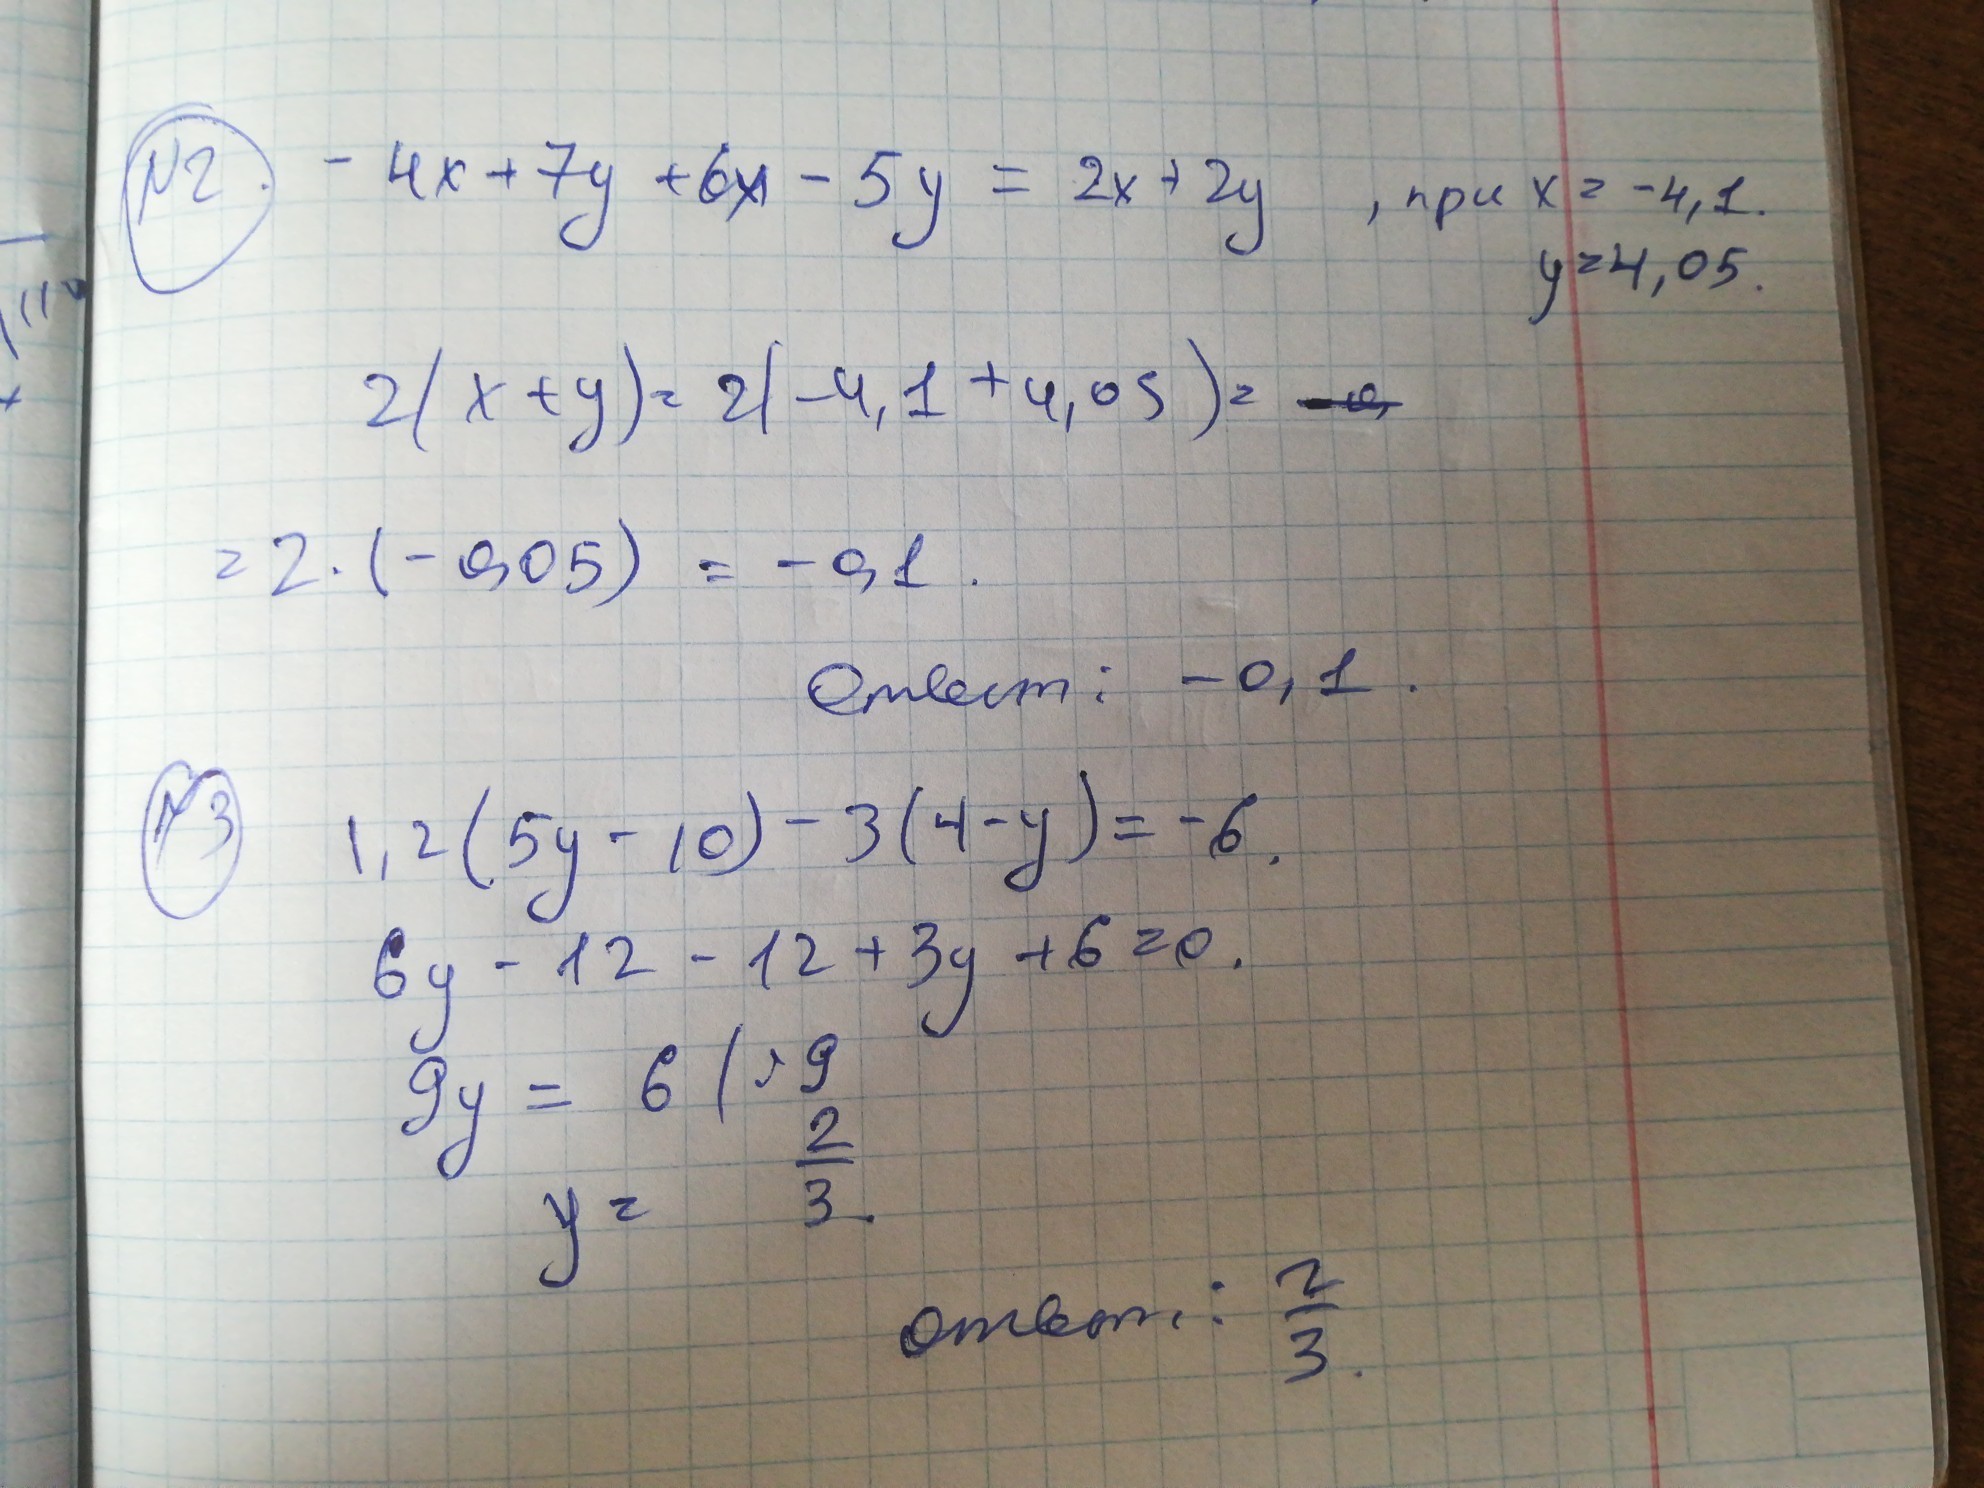 №2. - 4x + 7y + 6x - 5y = 2x + 2y , при x = -4,1.
y = 4,05.
2(x + y) = 2(-4,1 + 4,05) =
= 2 · (-0,05) = -0,1.
Ответ: -0,1.
№3 1,2(5y - 10) - 3(4 - y) = -6.
6y - 12 - 12 + 3y + 6 = 0.
9y = 6 | : 9
y = 2/3.
Ответ: 2/3.